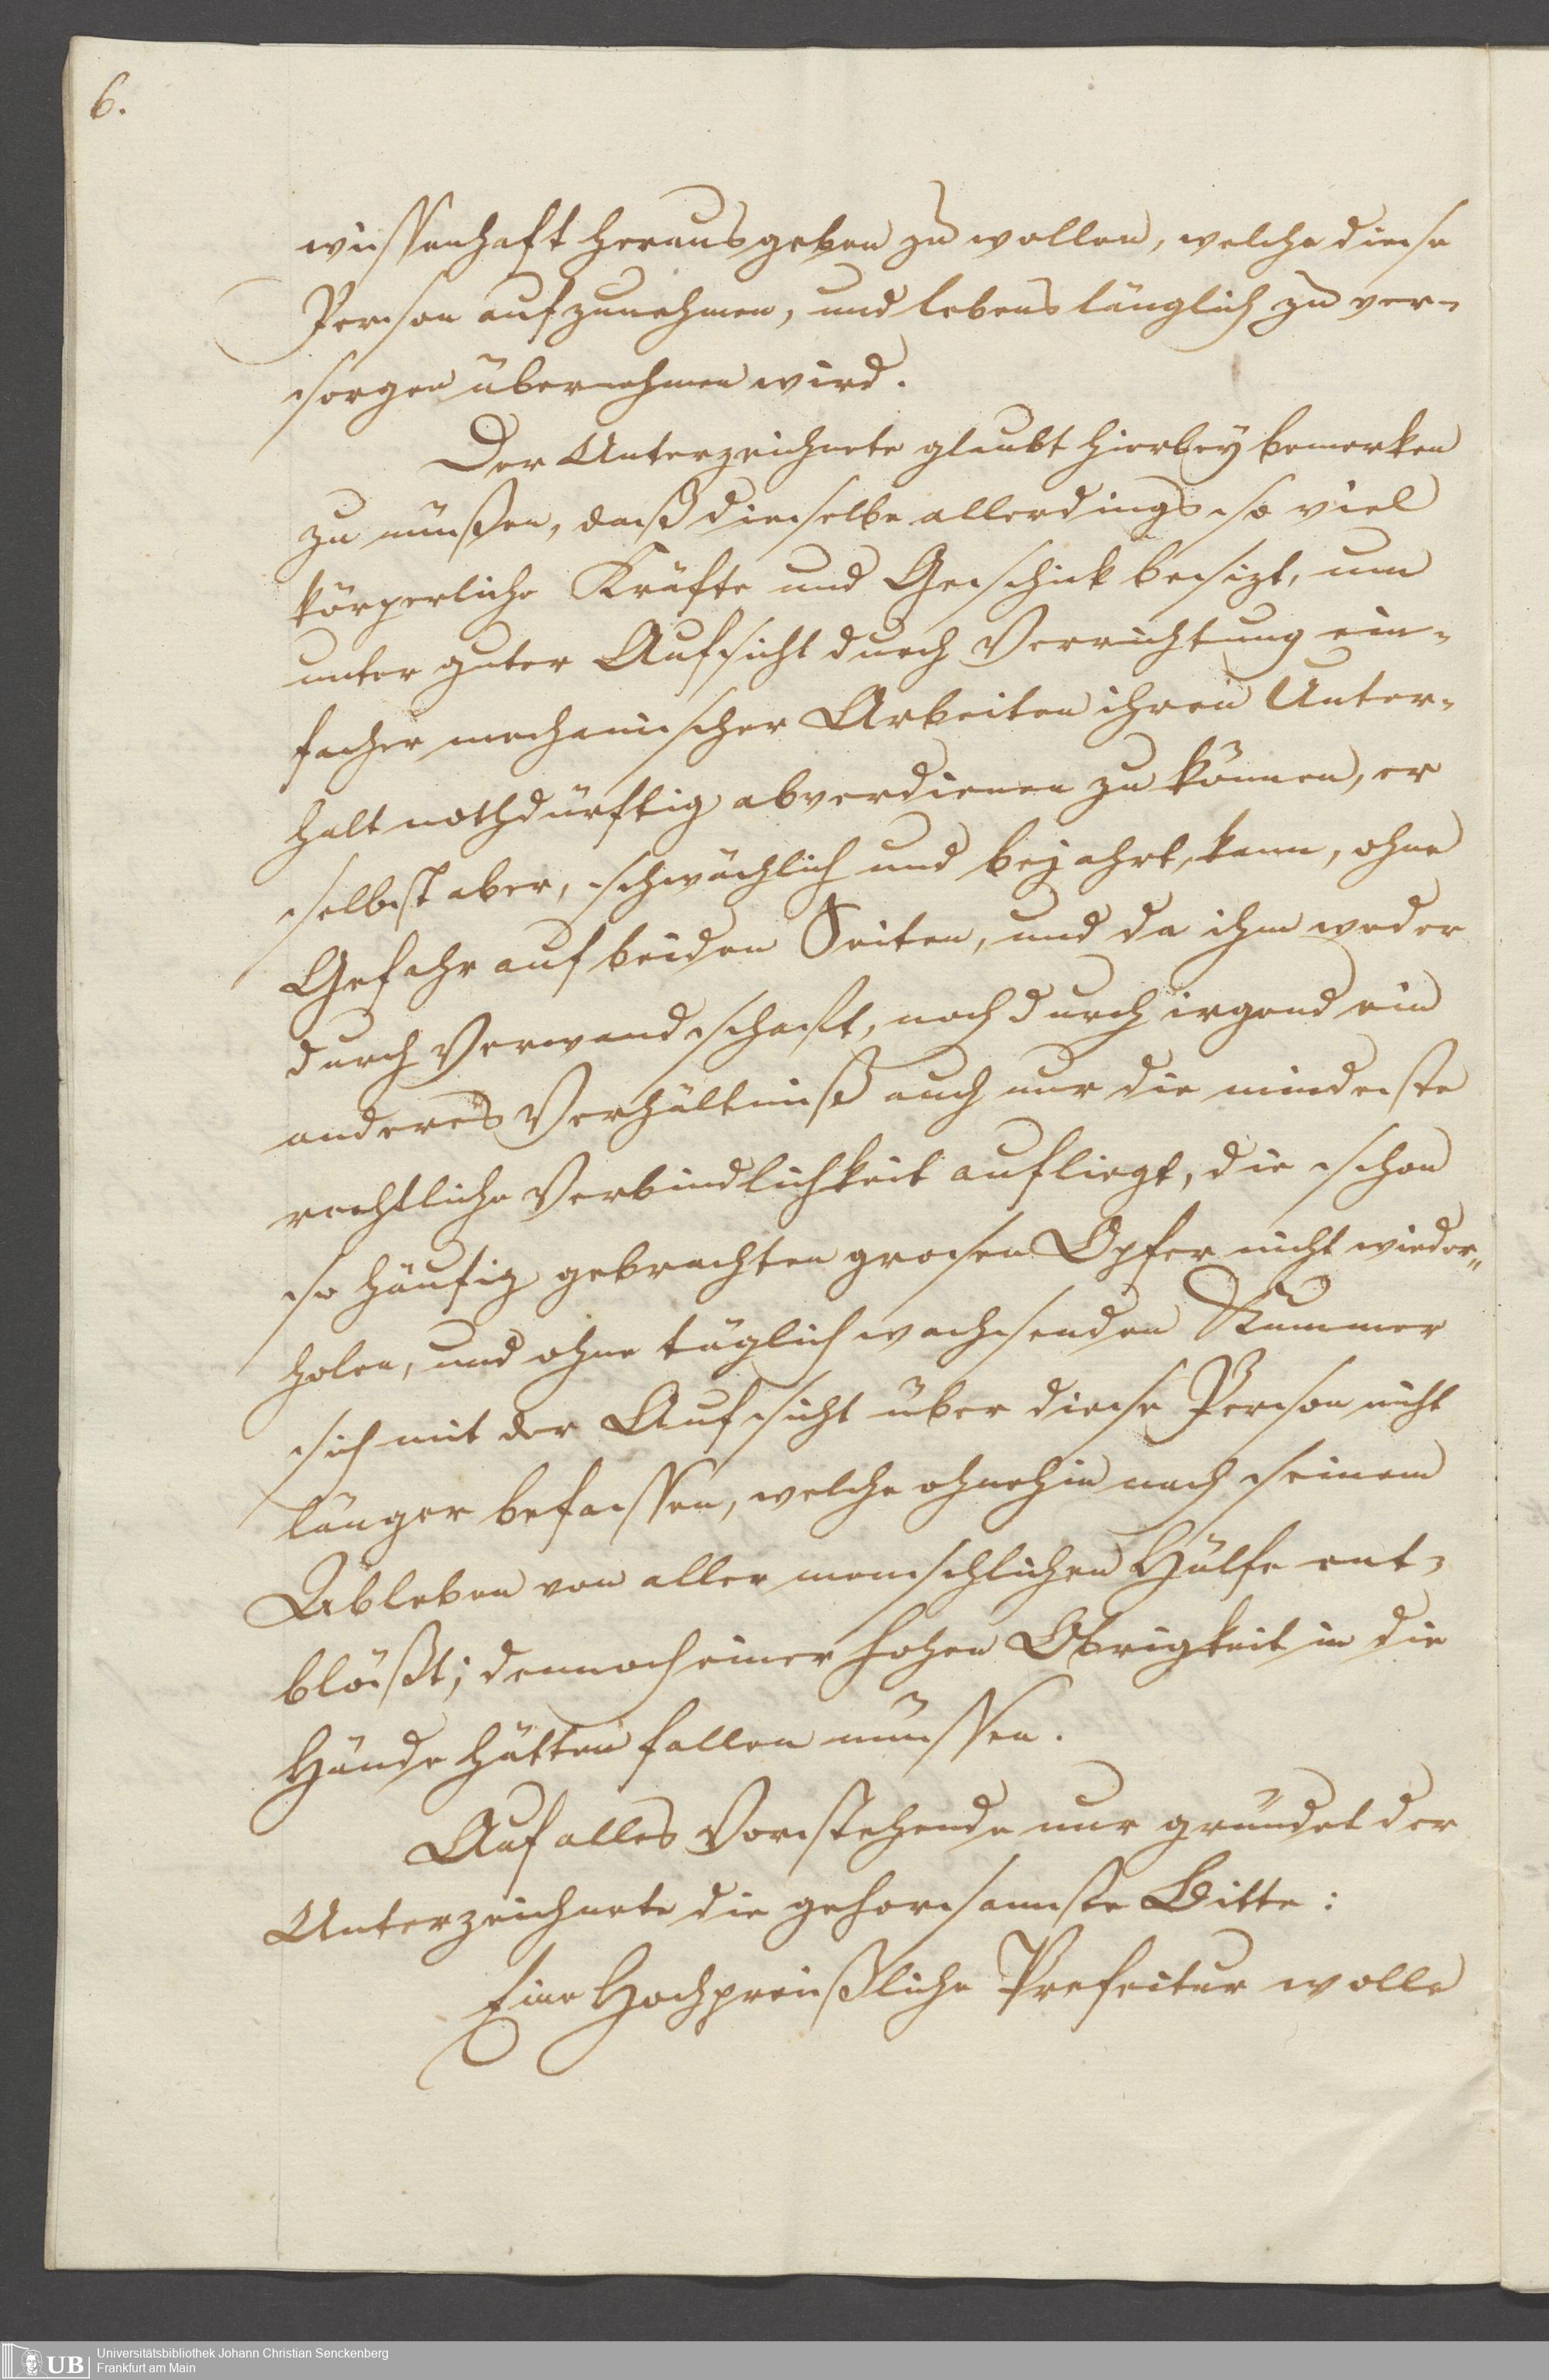 6.
wissenhaft herausgeben zu wollen, welche diese
Person aufzunehmen, und lebenslänglich zu ver-
sorgen übernehmen wird.
Der Unterzeichnete glaubt hierbey bemerken
zu müßen, daß dieselbe allerdings so viel
körperliche Kräfte und Geschick besizt, um
unter guter Aufsicht durch Verrichtung ein-
facher mechanischer Arbeiten ihren Unter-
halt nothdürftig abverdienen zu können, er
selbst aber, schwächlich und bejahrt, kann, ohne
Gefahr auf beiden Seiten, und da ihm weder
durch Verwandschaft, noch durch irgend ein
anderes Verhältniß auch nur die mindeste
rechtliche Verbindlichkeit aufliegt, die schon
so häufig gebrachten grosen Opfer nicht wieder-
holen, und ohne täglich wachsenden Kummer
sich mit der Aufsicht über diese Person nicht
länger befassen, welche ohnehin nach seinem
Ableben von aller menschlichen Hülfe ent-
blößt; dennoch einer hohen Obrigkeit in die
Hände hätten fallen müssen.
Auf alles Vorstehende nur gründet der
Unterzeichnete die gehorsamste Bitte:
Eine Hochpreißliche Prefectur wolle
UB
Universitätsbibliothek Johann Christian Senckenberg
Frankfurt am Main